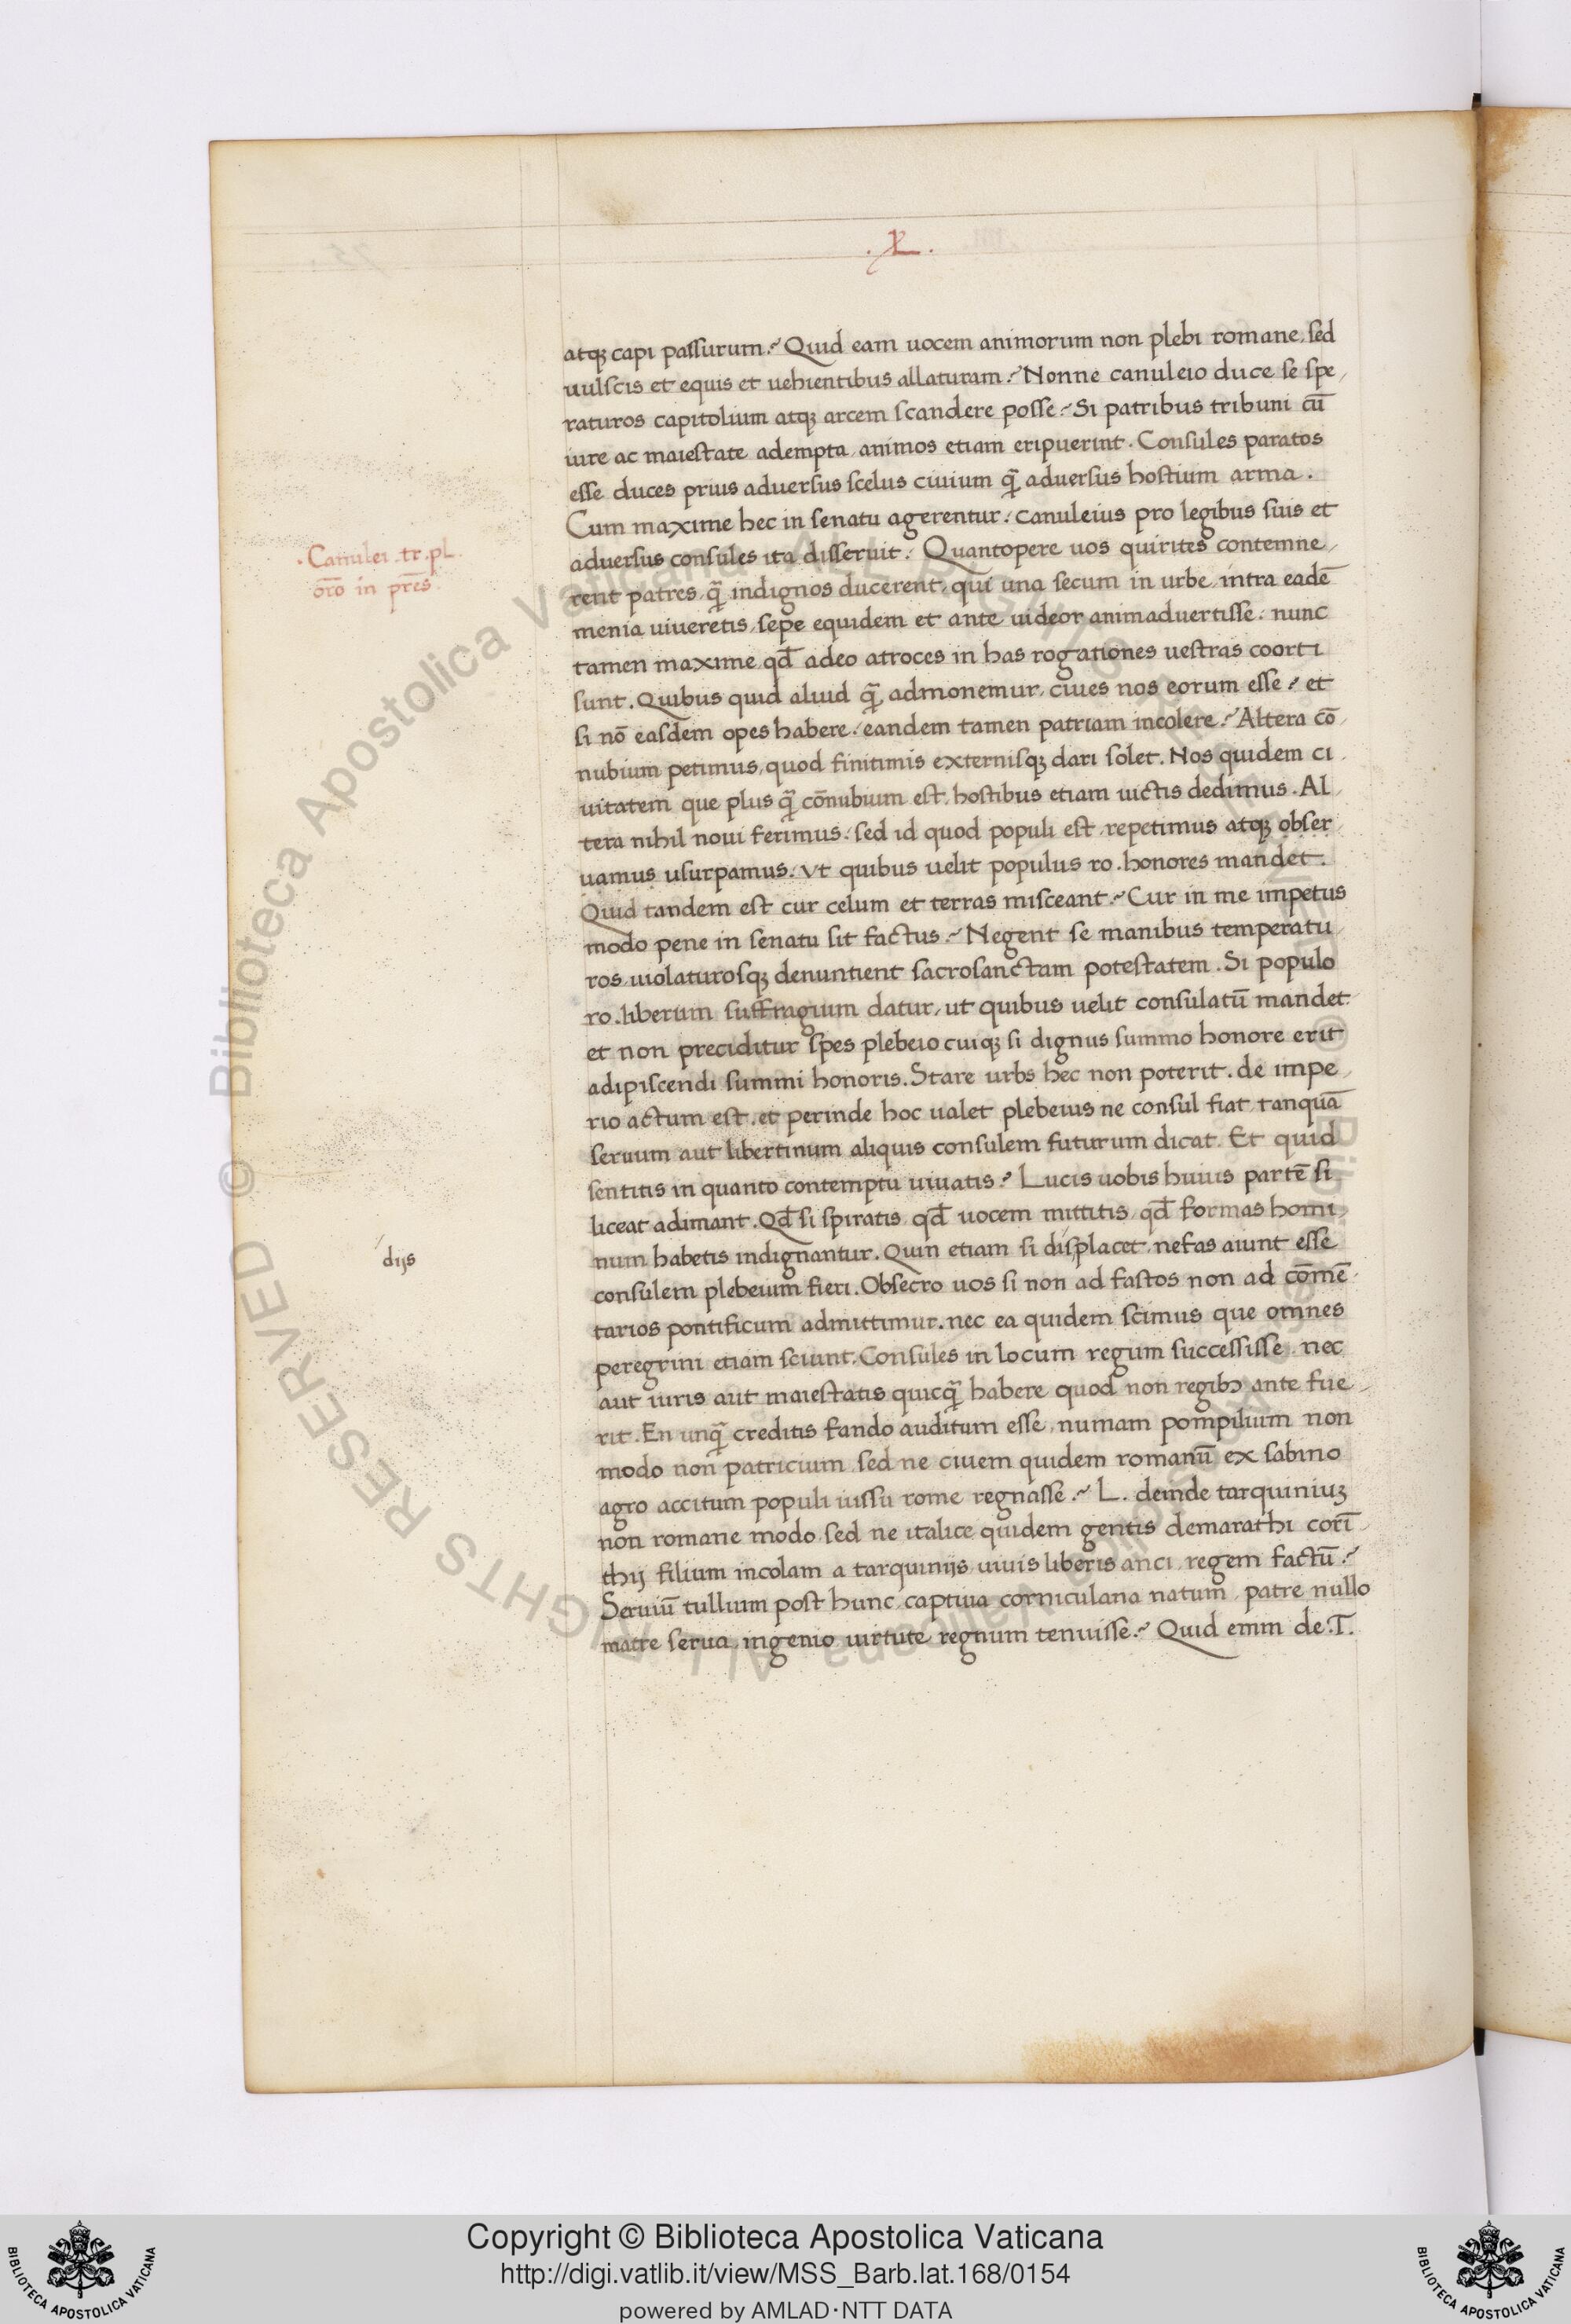 .L.
atqꝫ capi passurum? Quid eam uocem animorum non plebi romane, sed
uulscis et equis et uehientibus allaturam? Nonne canuleio duce se spe,
raturos capitolium atqꝫ arcem scandere posse? Si patribus tribuni cū
iure ac maiestate adempta, animos etiam eripuerint. Consules paratos
esse duces prius aduersus scelus ciuium q̄ aduersus hostium arma.
Cum maxime hec in senatu agerentur: canuleius pro legibus suis et
.Canulei .tr.pl.
oro̅ in pr̅es
aduersus consules ita disseruit. Quantopere uos quirites contemne,
rent patres, q̄ indignos ducerent, qui una secum in urbe intra eadē
menia uiueretis, sepe equidem et ante uideor animaduertisse: nunc
tamen maxime, qđ adeo atroces in has rogationes uestras coorti
sunt. Quibus quid aliud q̄ admonemur, ciues nos eorum esse? et
si nō easdem opes habere: eandem tamen patriam incolere? Altera cō,
nubium petimus, quod finitimis externisqꝫ dari solet. Nos quidem ci,
uitatem que plus q̄ cōnubium est, hostibus etiam uictis dedimus. Al,
tera nihil noui ferimus: sed id quod populi est, repetimus atqꝫ obser,
uamus usurpamus. ut quibus uelit populus ro. honores mandet.
Quid tandem est cur celum et terras misceant? Cur in me impetus
modo pene in senatu sit factus? Negent se manibus temperatu,
ros, uiolaturosqꝫ denuntient sacrosanctam potestatem. Si populo
ro. liberum suffragium datur, ut quibus uelit consulatū mandet
et non preciditur spes plebeio cuiqꝫ si dignus summo honore erit
adipiscendi summi honoris. Stare urbs hec non poterit. de impe,
rio actum est. et perinde hoc ualet plebeius ne consul fiat, tanquā
seruum aut libertinum aliquis consulem futurum dicat. Et quid
sentitis in quanto contemptu uiuatis? Lucis uobis huius partē si
liceat adimant. Qđ si spiratis, qđ uocem mittitis, qđ formas homi,
dijs
num habetis indignantur. Quin etiam si displacet, nefas aiunt esse
consulem plebeium fieri. Obsecro uos si non ad fastos non ad cōmē,
tarios pontificum admittimur. nec ea quidem scimus que omnes
peregrini etiam sciunt. Consules in locum regum successisse, nec
aut iuris aut maiestatis quicq̄ habere quod non regibꝫ ante fue,
rit. En unq̄ creditis fando auditum esse, numam pompilium non
modo non patricium, sed ne ciuem quidem romanū ex sabino
agro accitum populi iussu rome regnasse? L. deinde tarquiniuꝫ
non romane modo, sed ne italice quidem gentis demarathi corī,
thij filium incolam a tarquinijs, uiuis liberis anci, regem factū?
Seruiū tullium post hunc, captiua corniculana natum, patre nullo
matre serua, ingenio uirtute regnum tenuisse? Quid enim de .T.
© Biblioteca Apostolica Vaticana ALL RIGHTS RESERVED
Copyright © Biblioteca Apostolica Vaticana
http://digi.vatlib.it/view/MSS_Barb.lat.168/0154
powered by AMLAD·NTT DATA
BIBLIOTECA APOSTOLICA VATICANA
BIBLIOTECA APOSTOLICA VATICANA